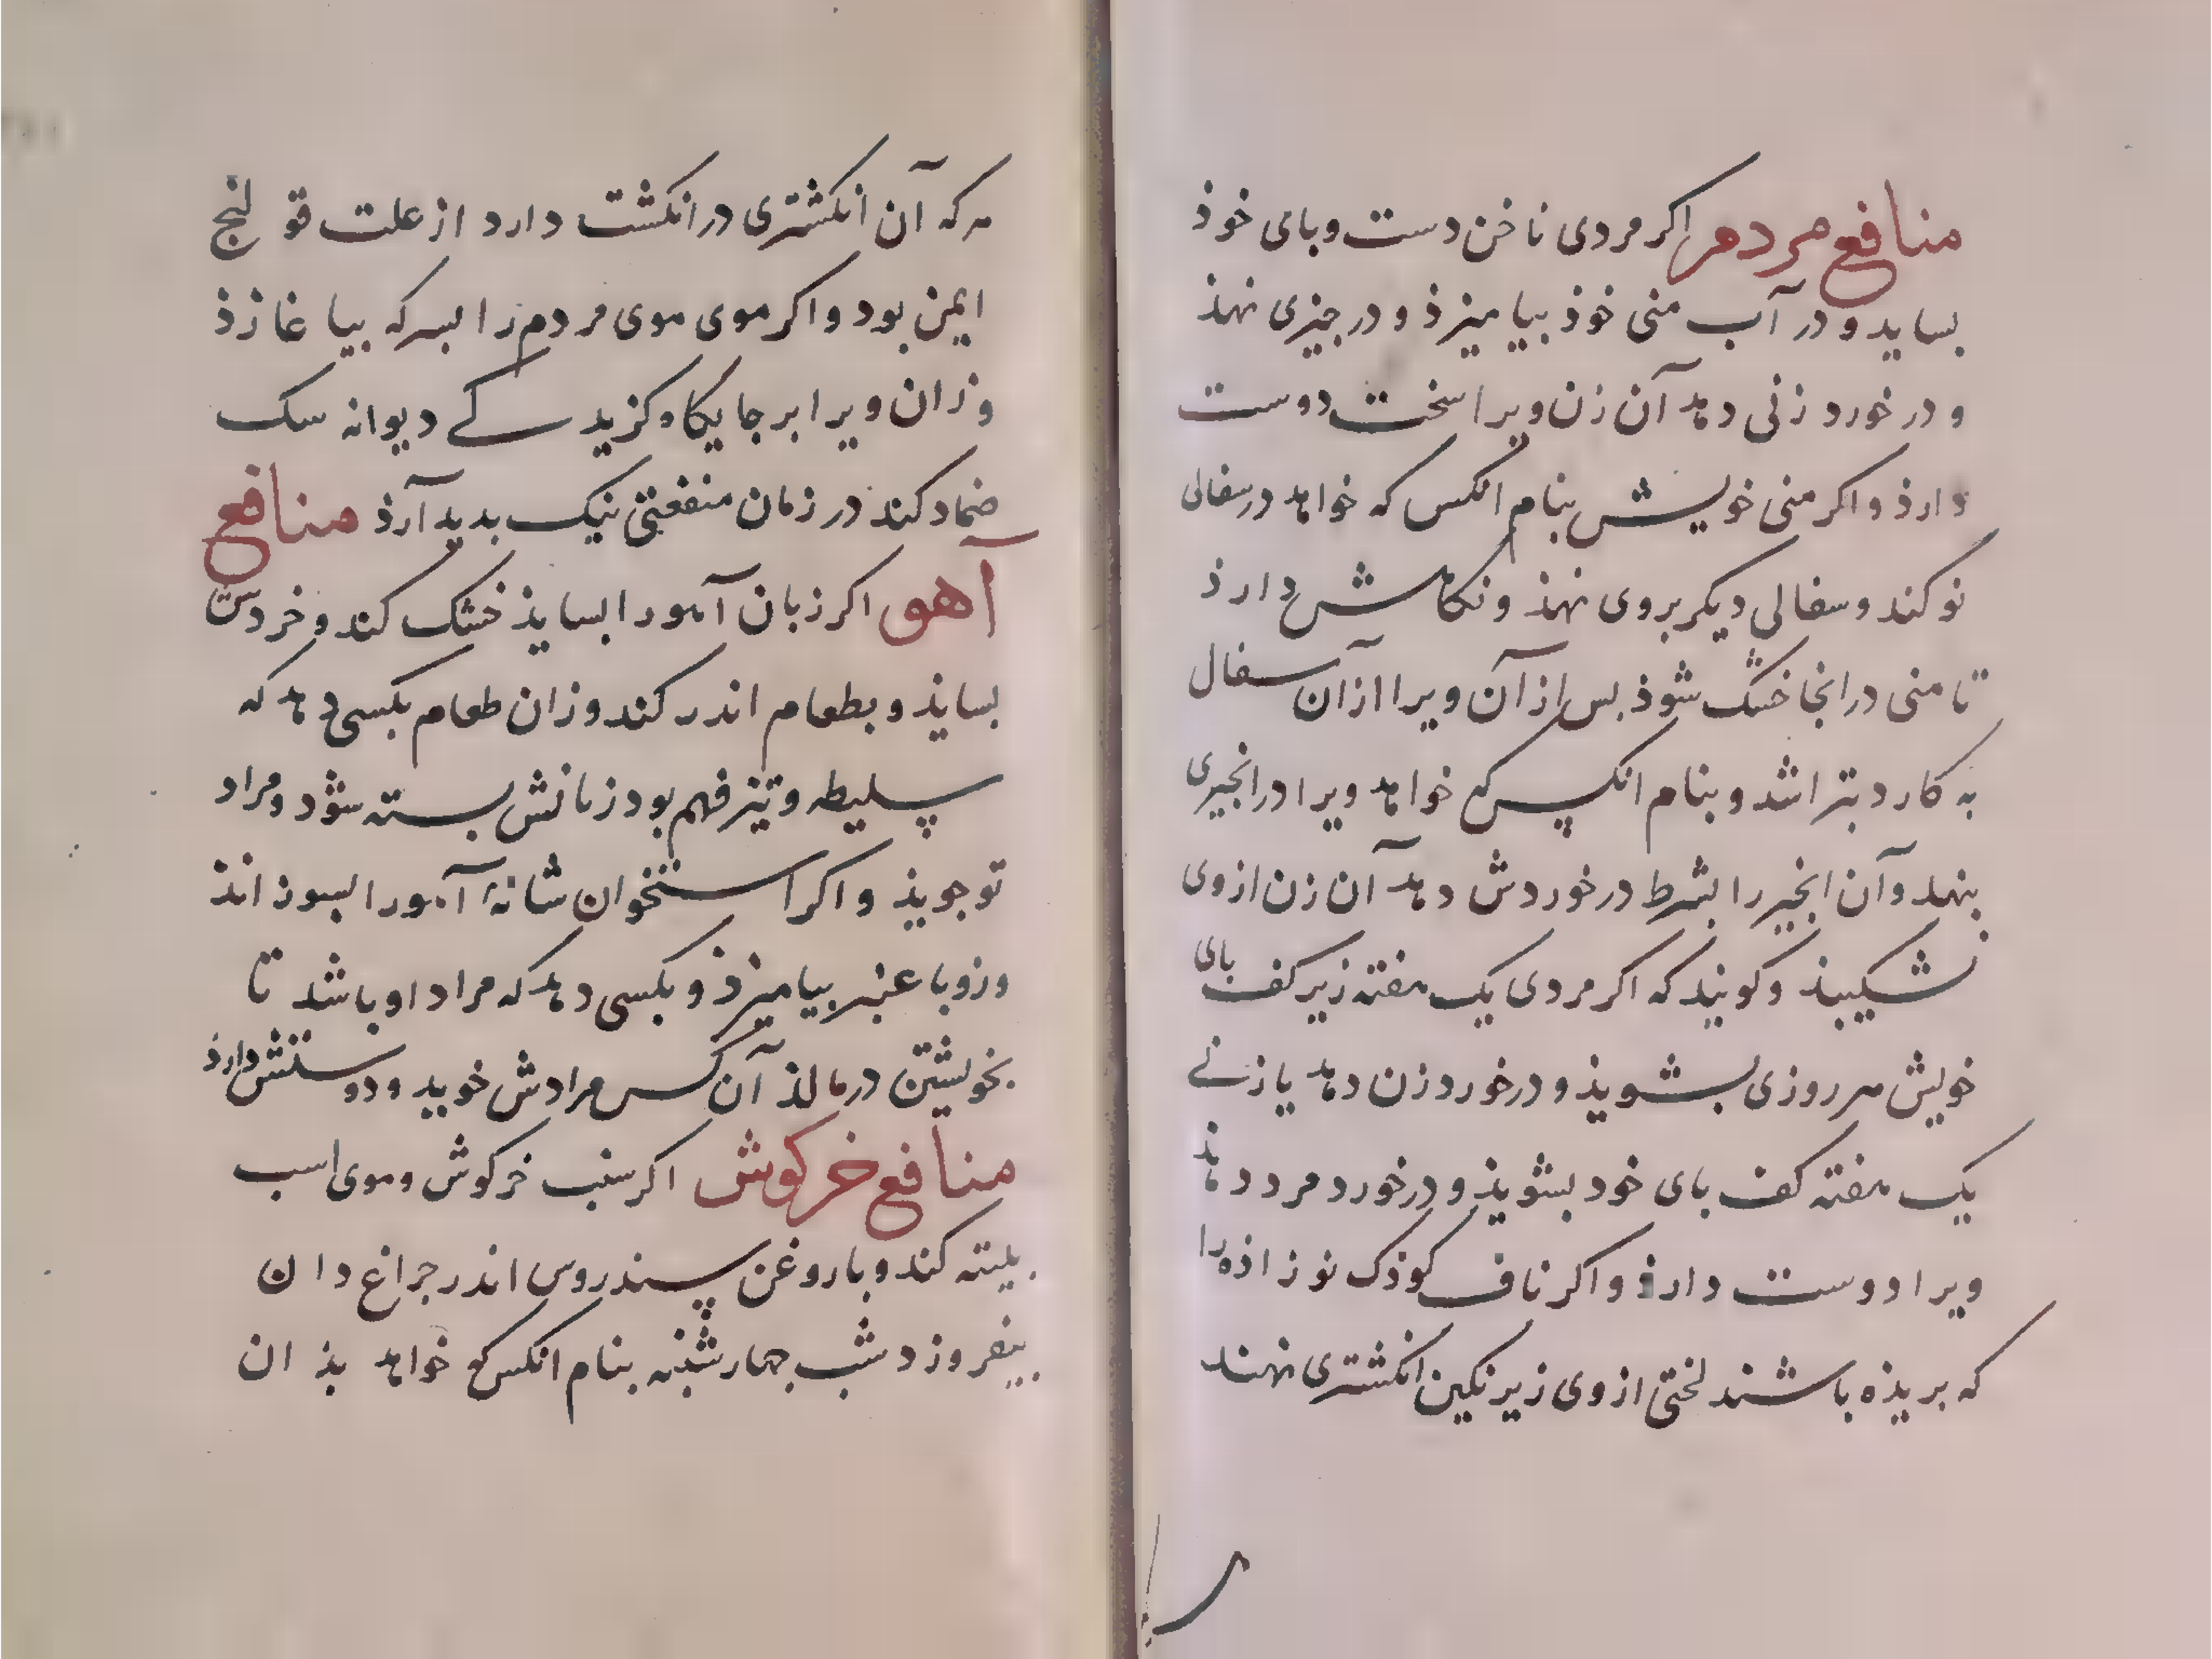 منافع مردم اکر مردی ناخن دست وبای خوذ
بساید و در آب منی خوذ بیامیزذ و در جیزی نهذ
و در خورد زنی دهد آن زن ویرا سخت دوست
دارذ واکر منی خویش بنام انکس که خواهد در سفالی
نو کند و سفالی دیکر بروی نهذ ونکاهش دارذ
تا منی در انجا خشک شوذ بس از آن ویرا ازآن سفال
به کارد بتراشد و بنام انکس که خواهد ویرا در انجیری
بنهد وآن انجیر را بشرط در خوردش دهد آن زن ازوی
نشکیبذ وکویند که اکر مردی یک هفته زیر کف بای
خویش هر روزی بشویذ و در خورد زن دهد یا زنی
یک هفته کف بای خود بشویذ و در خورد مرد دهد
ویرا دوست دارذ واکر ناف کوذک نوزاذه را
که بریذه باشند لختی ازوی زیر نکین انکشتری نهند
هر که آن انکشتری در انکشت دارد از علت قولنج
ایمن بود واکر موی موی مردم را بسرکه بیاغازذ
وزان ویرا برجایکاه کزید کی دیوانه سک
ضماد کند در زمان منفعتی نیک بدید آرذ منافع
آهو اکر زبان آهو را بسایذ خشک کند و خردش
بسایذ و بطعام اندر کند وزان طعام بکسی دهد که
سلیطه وتیز فهم بود زبانش بسته شود ومراد
تو جویذ واکر استخوان شانهٔ آهو را بسوزاند
وزو با عنبر بیامیزذ و بکسی دهد که مراد او باشد تا
بخویشتن در مالذ آن کس مرادش خوید ودوستش دارذ
منافع خرکوش اکر سنب خرکوش وموی اسب
بلیته کند وبا روغن سندروس اندر جراغ دان
بیفروزد شب جهارشنبه بنام انکس که خواهد بذان